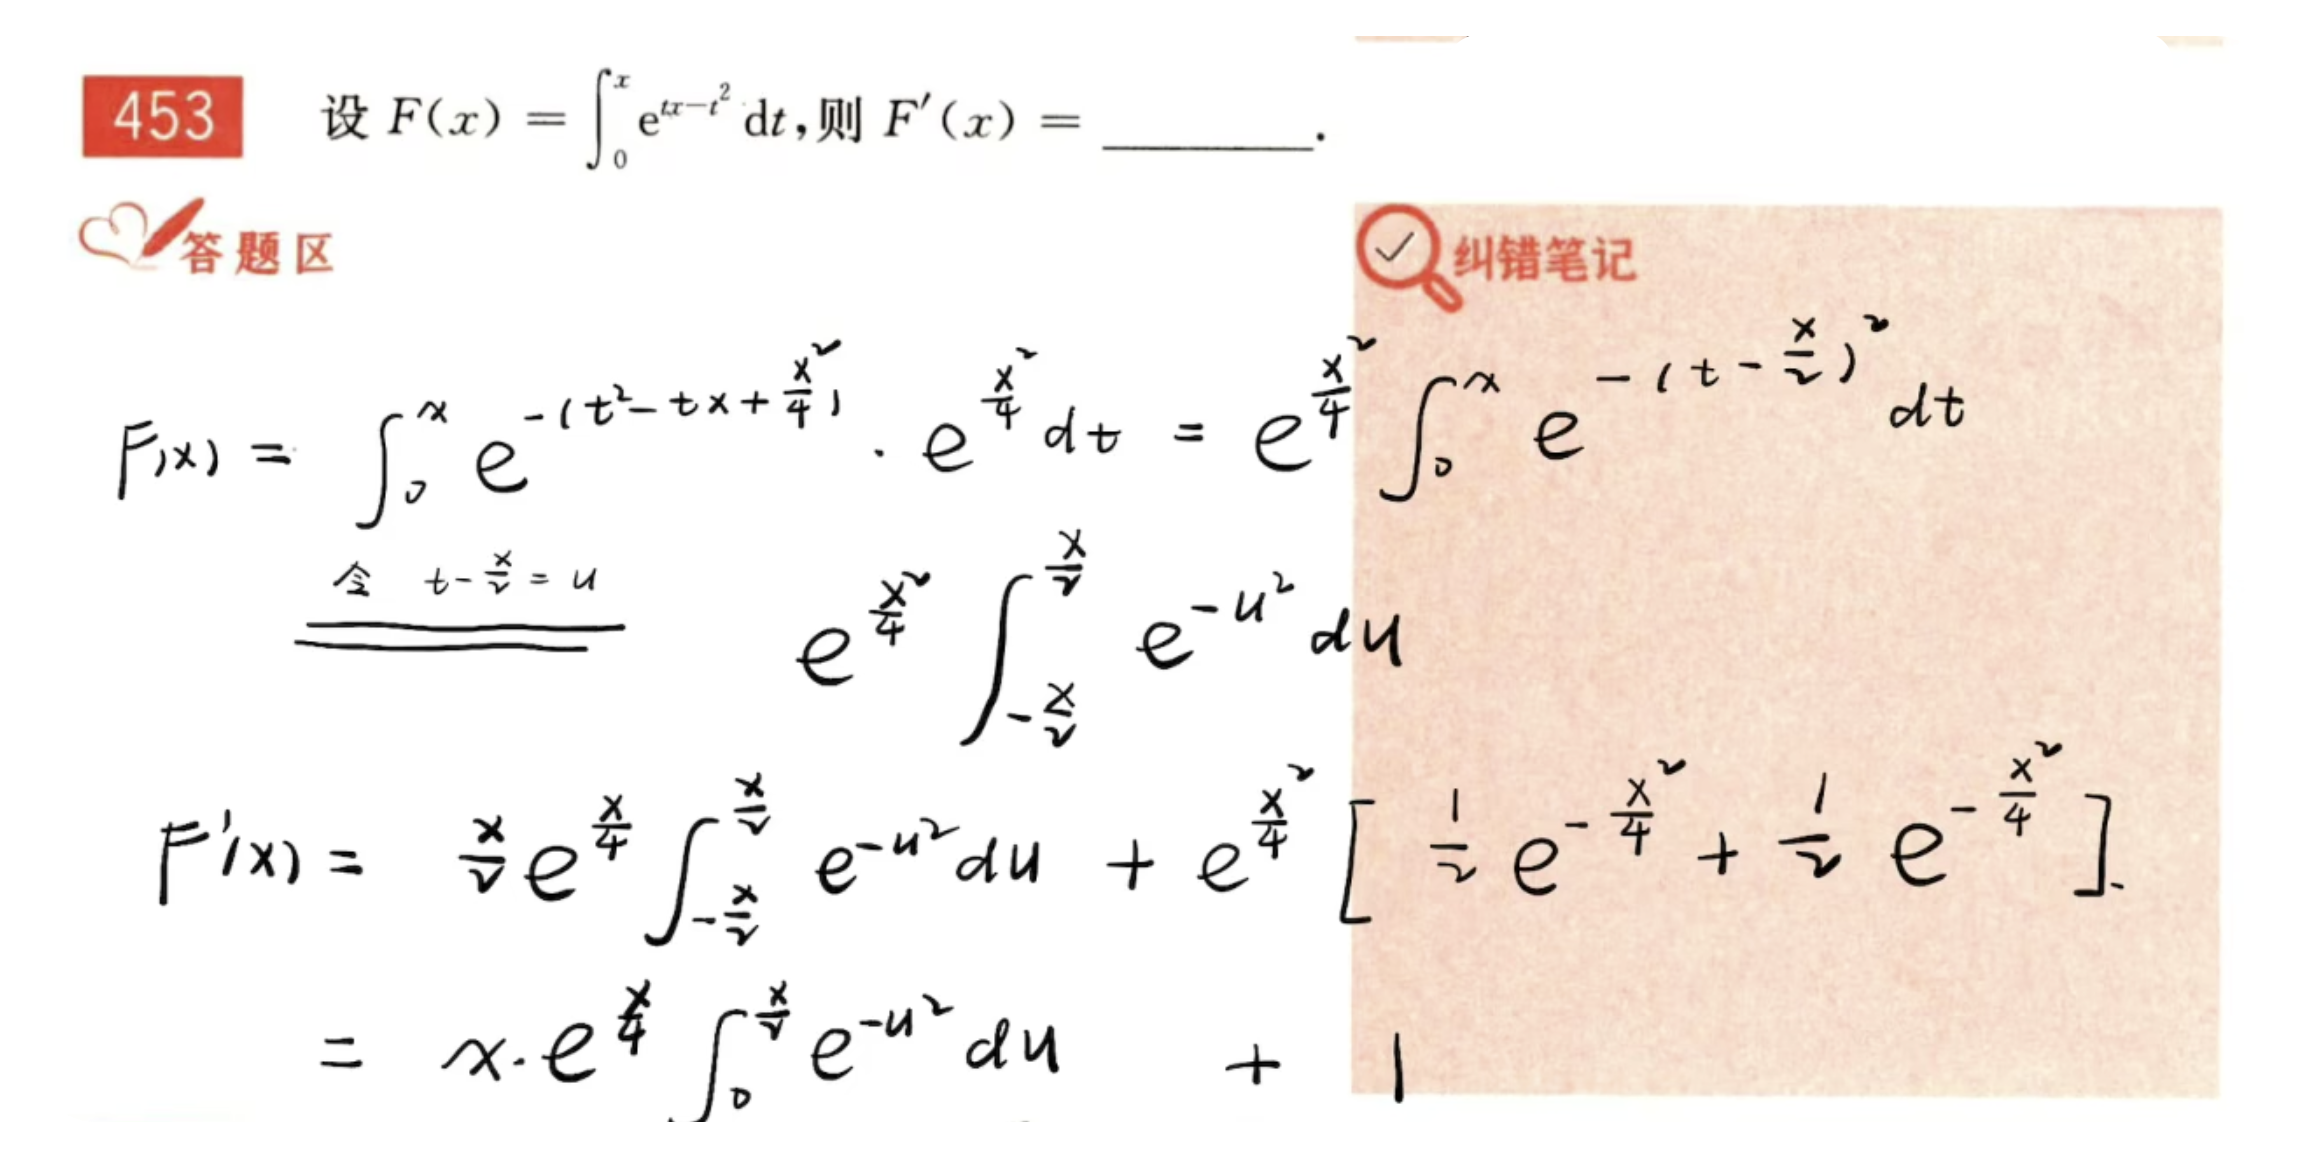 453 设 F(x) = ∫₀ˣ e^{tx−t²} dt, 则 F′(x) = ________.
答题区
纠错笔记
F(x) = ∫₀ˣ e^{-(t²-tx+x²/4)} · e^{x²/4} dt = e^{x²/4} ∫₀ˣ e^{-(t-x/2)²} dt
令 t-x/2 = u e^{x²/4} ∫_{-x/2}^{x/2} e^{-u²} du
F′(x) = x/2 e^{x/4} ∫_{-x/2}^{x/2} e^{-u²} du + e^{x²/4} [ 1/2 e^{-x²/4} + 1/2 e^{-x²/4} ].
= x · e^{x/4} ∫₀^{x/2} e^{-u²} du + 1